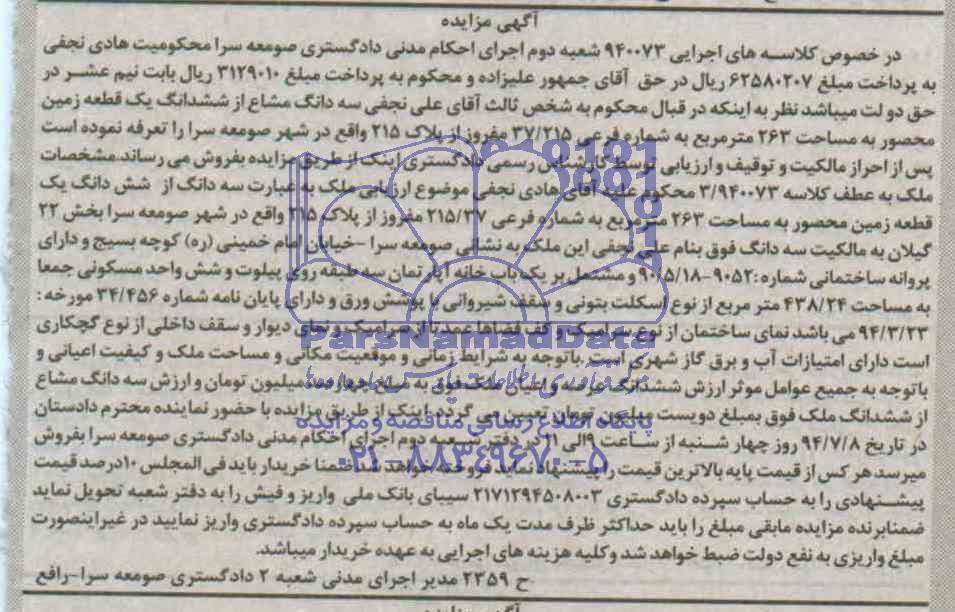 آگهی مزایده
در خصوص کلاسه های اجرایی ۹۴۰۰۷۳ شعبه دوم اجرای احکام مدنی دادگستری صومعه سرا محکومیت هادی نجفی
به پرداخت مبلغ ۶۲۵۸۰۲۰۷ ریال در حق آقای جمهور علیزاده و محکوم به پرداخت مبلغ ۳۱۲۹۰۱۰ ریال بابت نیم عشر در
حق دولت میباشد نظر به اینکه در قبال محکوم به شخص ثالث آقای علی نجفی سه دانگ مشاع از ششدانگ یک قطعه زمین
محصور به مساحت ۲۶۳ مترمربع به شماره فرعی ۳۷/۲۱۵ مفروز از پلاک ۲۱۵ واقع در شهر صومعه سرا را تعرفه نموده است
پس از احراز مالکیت و توقیف و ارزیابی توسط کارشناس رسمی دادگستری اینک از طریق مزایده بفروش می رساند.مشخصات
ملک به عطف کلاسه ۳/۹۴۰۰۷۳ محکوم علیه آقای هادی نجفی موضوع ارزیابی ملک به عبارت سه دانگ از شش دانگ یک
قطعه زمین محصور به مساحت ۲۶۳ مترمربع به شماره فرعی ۲۱۵/۳۷ مفروز از پلاک ۲۱۵ واقع در شهر صومعه سرا بخش ۲۲
گیلان به مالکیت سه دانگ فوق بنام علی نجفی این ملک به نشانی صومعه سرا -خیابان امام خمینی (ره) کوچه بسیج و دارای
پروانه ساختمانی شماره:۹۰۵۲-۹۰/۵/۱۸ و مشتمل بر یک باب خانه آپارتمان سه طبقه روی پیلوت و شش واحد مسکونی جمعا
به مساحت ۴۳۸/۲۴ متر مربع از نوع اسکلت بتونی و سقف شیروانی با پوشش ورق و دارای پایان نامه شماره ۳۴/۴۵۶ مورخه:
۹۴/۳/۲۳ می باشد نمای ساختمان از نوع سرامیک و کف فضاها عمدتا از سرامیک و نمای دیوار و سقف داخلی از نوع گچکاری
است دارای امتیازات آب و برق گاز شهری است .باتوجه به شرایط زمانی و موقعیت مکانی و مساحت ملک و کیفیت اعیانی و
باتوجه به جمیع عوامل موثر ارزش ششدانگ عرصه و اعیان ملک فوق به مبلغ چهارصد میلیون تومان و ارزش سه دانگ مشاع
از ششدانگ ملک فوق بمبلغ دویست میلیون تومان تعیین می گردد.اینک از طریق مزایده با حضور نماینده محترم دادستان
در تاریخ ۹۴/۷/۸ روز چهار شنبه از ساعت ۹ الی ۱۱ در دفتر شعبه دوم اجرای احکام مدنی دادگستری صومعه سرا بفروش
میرسد هر کس از قیمت پایه بالاترین قیمت را پیشنهاد نماید فروخته خواهد شد ضمنا خریدار باید فی المجلس ۱۰درصد قیمت
پیشنهادی را به حساب سپرده دادگستری ۲۱۷۱۲۹۴۵۰۸۰۰۳ سیبای بانک ملی واریز و فیش را به دفتر شعبه تحویل نماید
ضمنابرنده مزایده مابقی مبلغ را باید حداکثر ظرف مدت یک ماه به حساب سپرده دادگستری واریز نمایید در غیراینصورت
مبلغ واریزی به نفع دولت ضبط خواهد شد وکلیه هزینه های اجرایی به عهده خریدار میباشد.
ح ۲۳۵۹ مدیر اجرای مدنی شعبه ۲ دادگستری صومعه سرا-رافع
ParsNamadData
پایگاه اطلاع رسانی مناقصه و مزایده
۰۲۱-۸۸۳۴۹۶۷۰-۵